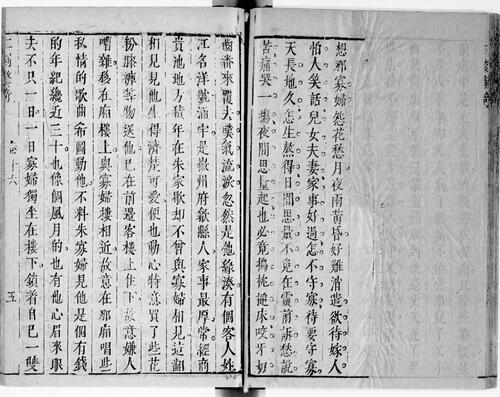 想那寡婦怨花愁月夜雨黃昏好難消遣欲待嫁人
怕人笑話兒女夫妻家事好過怎不守寡待要守寡
天長地久怎生熬得日間思量不免在靈前訴愁說
苦痛哭一場夜間思量起也必竟搗枕搥床咬牙切
齒番來覆去嘆氣流淚忽然是他緣湊有個客人姓
江名洋號涵宇是徽州府歙縣人家事最厚常經商
貴池地方積年在朱家歇却不曾與寡婦相見這翻
相見見他生得濟楚可愛便也動心特意買了些花
粉膝褲等物送他已在前邊客樓上住下故意嫌人
嘈雜移在廂樓上與寡婦樓相近故意在那廂唱些
私情的歌曲希圖動他不料朱寡婦見他是個有錢
的年紀幾近三十也像個風月的也有他心眉來眼
去不只一日一日寡婦獨坐在樓下鎖着自己一雙
卷十六
五